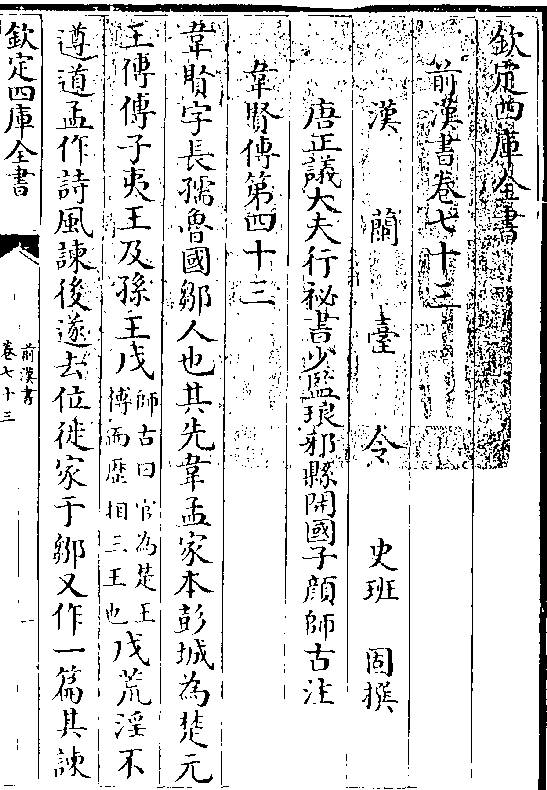 欽定四庫全書
前漢書卷七十三
漢蘭臺令史班固撰
唐正議大夫行祕書少監琅邪縣開國子顔師古注
韋賢傳第四十三
韋賢字長孺魯國鄒人也其先韋孟家本彭城為楚元
王傅傅子夷王及孫王戊師古曰官為楚王傅而歴相三王也戊荒淫不
遵道孟作詩風諫後遂去位徙家于鄒又作一篇其諫
欽定四庫全書
前漢書
卷七十三
一